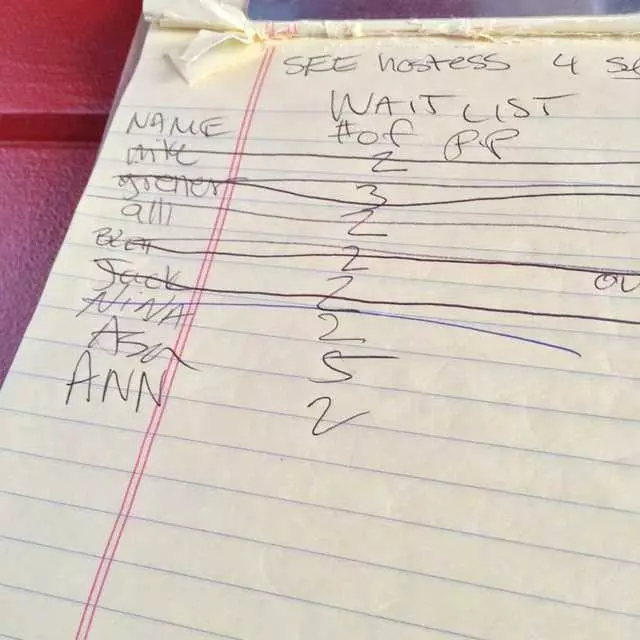 SEE hostess 4
WAIT LIST
NAME #of pp
mike 2
3
alli 2
Ben 2
Jack 2 ou
NINA 2
Asa 5
ANN 2